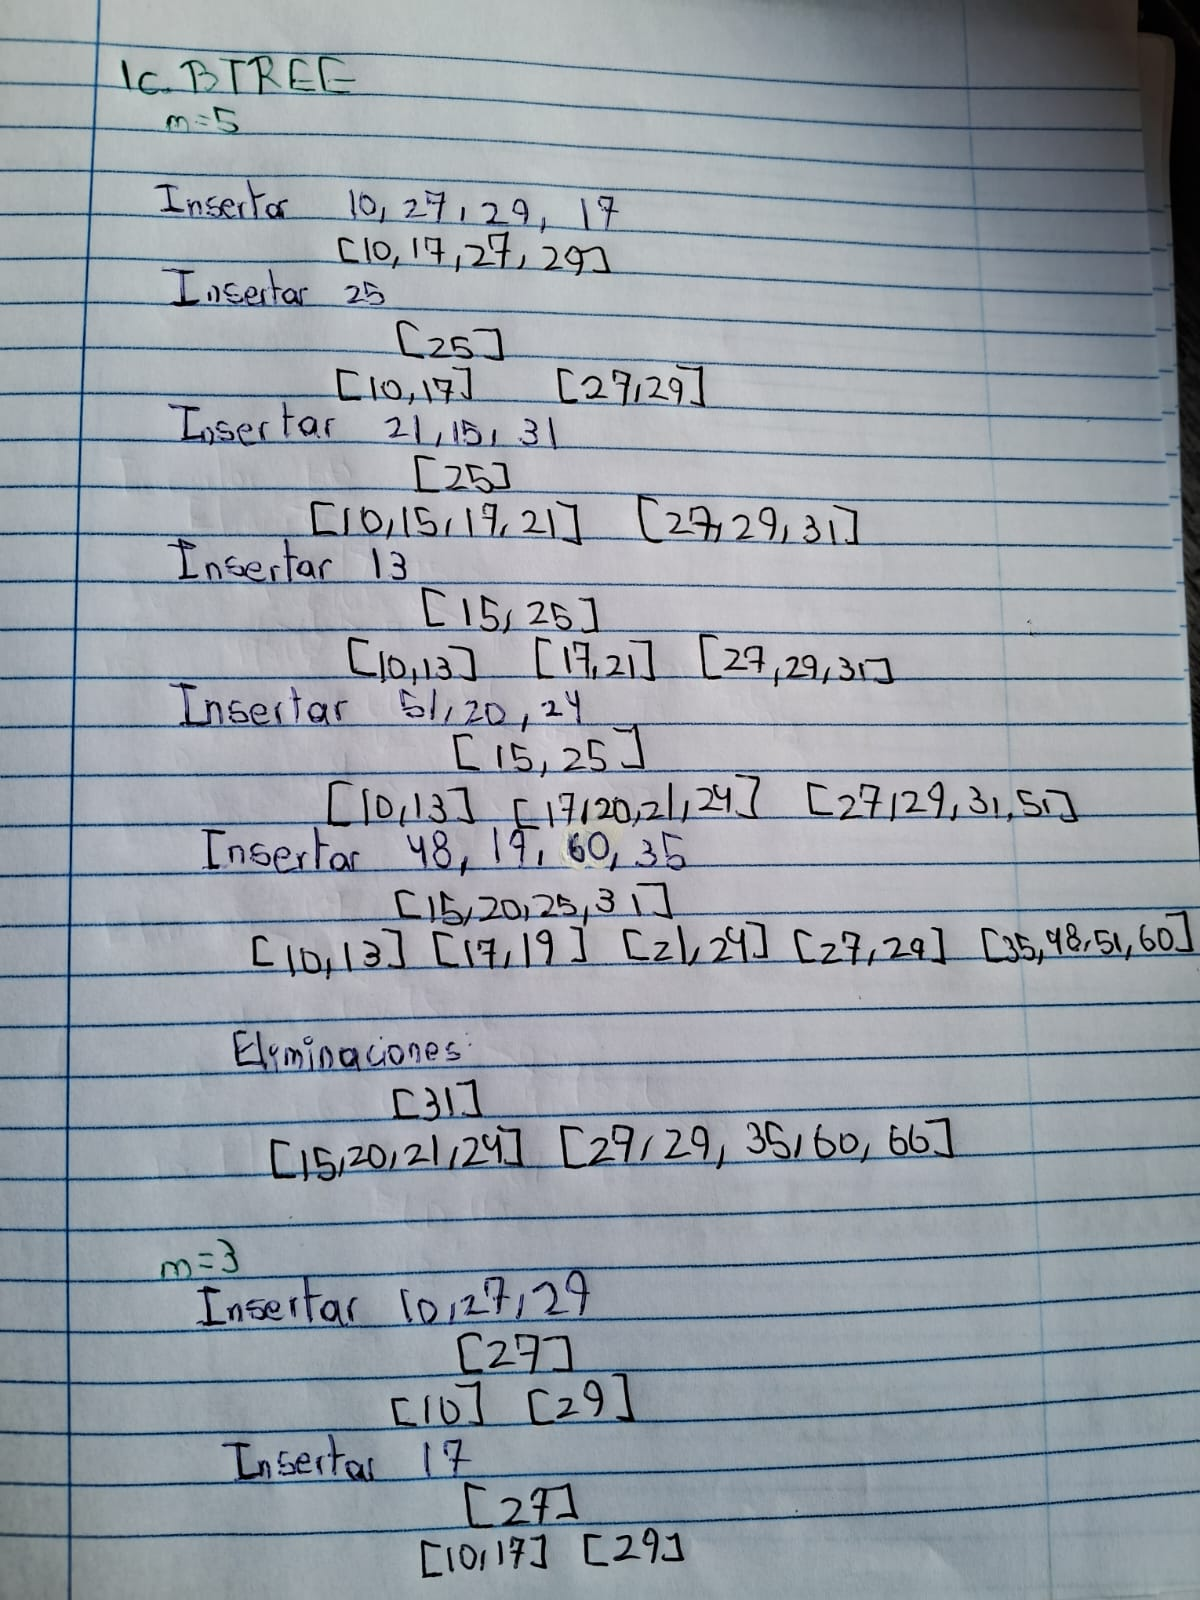 1c. BTREE
m=5
Insertar 10, 27, 29, 17
[10, 17, 27, 29]
Insertar 25
[25]
[10, 17] [27, 29]
Insertar 21, 15, 31
[25]
[10, 15, 17, 21] [27, 29, 31]
Insertar 13
[15, 25]
[10, 13] [17, 21] [27, 29, 31]
Insertar 51, 20, 24
[15, 25]
[10, 13] [17, 20, 21, 24] [27, 29, 31, 51]
Insertar 48, 19, 60, 35
[15, 20, 25, 31]
[10, 13] [17, 19] [21, 24] [27, 29] [35, 48, 51, 60]
Eliminaciones:
[31]
[15, 20, 21, 24] [27, 29, 35, 60, 66]
m=3
Insertar 10, 27, 29
[27]
[10] [29]
Insertar 17
[27]
[10, 17] [29]